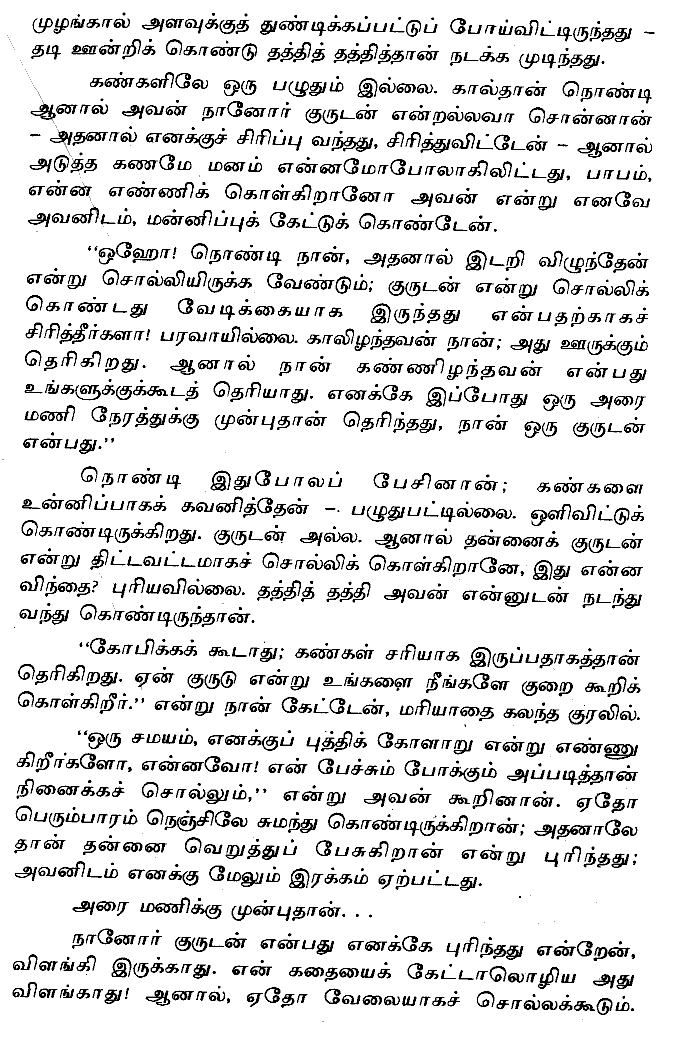 முழங்கால் அளவுக்குத் துண்டிக்கப்பட்டுப் போய்விட்டிருந்தது –
தடி ஊன்றிக் கொண்டு தத்தித் தத்தித்தான் நடக்க முடிந்தது.
கண்களிலே ஒரு பழுதும் இல்லை. கால்தான் நொண்டி
ஆனால் அவன் நானோர் குருடன் என்றல்லவா சொன்னான்
– அதனால் எனக்குச் சிரிப்பு வந்தது, சிரித்துவிட்டேன் – ஆனால்
அடுத்த கணமே மனம் என்னமோபோலாகிலிட்டது, பாபம்,
என்ன எண்ணிக் கொள்கிறானோ அவன் என்று எனவே
அவனிடம், மன்னிப்புக் கேட்டுக் கொண்டேன்.
“ஒஹோ! நொண்டி நான், அதனால் இடறி விழுந்தேன்
என்று சொல்லியிருக்க வேண்டும்; குருடன் என்று சொல்லிக்
கொண்டது வேடிக்கையாக இருந்தது என்பதற்காகச்
சிரித்தீர்களா! பரவாயில்லை. காலிழந்தவன் நான்; அது ஊருக்கும்
தெரிகிறது. ஆனால் நான் கண்ணிழந்தவன் என்பது
உங்களுக்குக்கூடத் தெரியாது. எனக்கே இப்போது ஒரு அரை
மணி நேரத்துக்கு முன்புதான் தெரிந்தது, நான் ஒரு குருடன்
என்பது.”
நொண்டி இதுபோலப் பேசினான்; கண்களை
உன்னிப்பாகக் கவனித்தேன் –. பழுதுபட்டில்லை. ஒளிவிட்டுக்
கொண்டிருக்கிறது. குருடன் அல்ல. ஆனால் தன்னைக் குருடன்
என்று திட்டவட்டமாகச் சொல்லிக் கொள்கிறானே, இது என்ன
விந்தை? புரியவில்லை. தத்தித் தத்தி அவன் என்னுடன் நடந்து
வந்து கொண்டிருந்தான்.
“கோபிக்கக் கூடாது; கண்கள் சரியாக இருப்பதாகத்தான்
தெரிகிறது. ஏன் குருடு என்று உங்களை நீங்களே குறை கூறிக்
கொள்கிறீர்.” என்று நான் கேட்டேன், மரியாதை கலந்த குரலில்.
“ஒரு சமயம், எனக்குப் புத்திக் கோளாறு என்று எண்ணு
கிறீர்களோ, என்னவோ! என் பேச்சும் போக்கும் அப்படித்தான்
நினைக்கச் சொல்லும்,” என்று அவன் கூறினான். ஏதோ
பெரும்பாரம் நெஞ்சிலே சுமந்து கொண்டிருக்கிறான்; அதனாலே
தான் தன்னை வெறுத்துப் பேசுகிறான் என்று புரிந்தது;
அவனிடம் எனக்கு மேலும் இரக்கம் ஏற்பட்டது.
அரை மணிக்கு முன்புதான். . .
நானோர் குருடன் என்பது எனக்கே புரிந்தது என்றேன்,
விளங்கி இருக்காது. என் கதையைக் கேட்டாலொழிய அது
விளங்காது! ஆனால், ஏதோ வேலையாகச் சொல்லக்கூடும்.